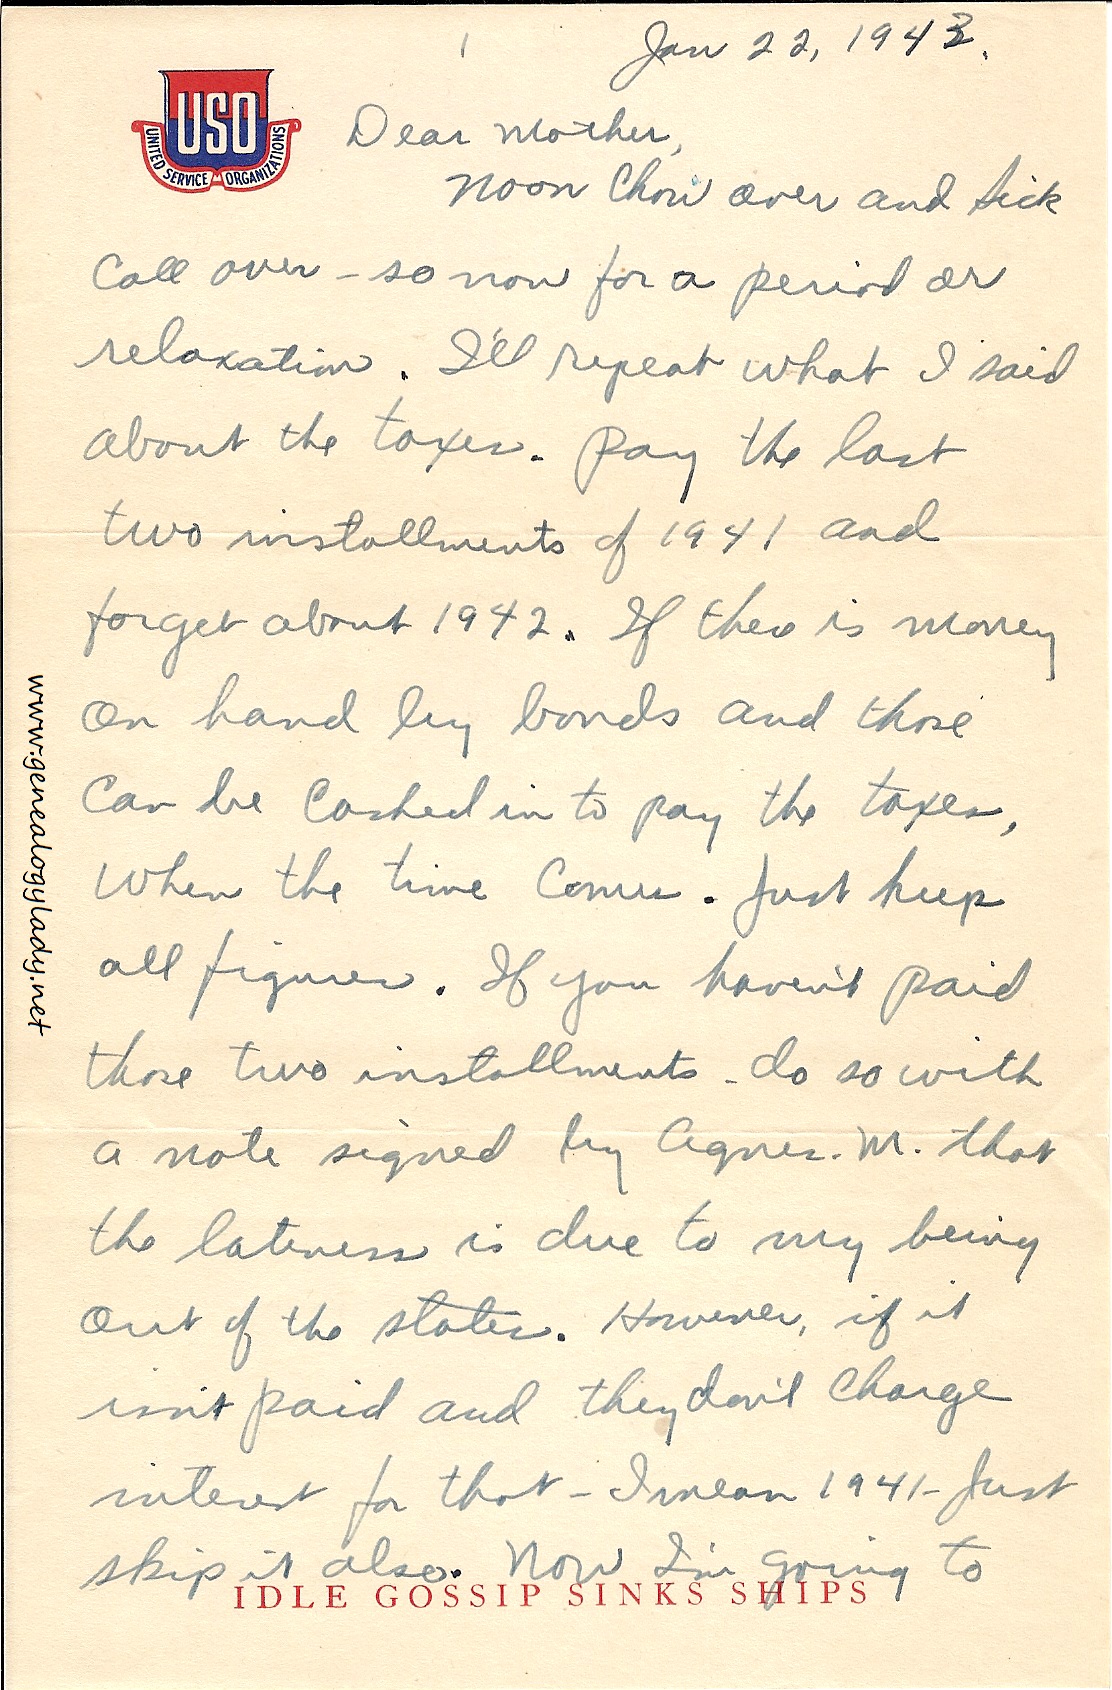 1
Jan 22, 1943.
USO
UNITED SERVICE ORGANIZATIONS
Dear Mother,
Noon Chow over and Sick
Call over – so now for a period or
relaxation. I'll repeat what I said
about the taxes. Pay the last
two installments of 1941 and
forget about 1942. If there is money
on hand buy bonds and those
can be cashed in to pay the taxes,
when the time comes. Just keep
all figures. If you haven't paid
those two installments – do so with
a note signed by Agnes. M. that
the lateness is due to my being
out of the states. However, if it
isn't paid and they don't charge
interest for that – I mean 1941 – Just
skip it also. Now I'm going to
IDLE GOSSIP SINKS SHIPS
www.genealogylady.net